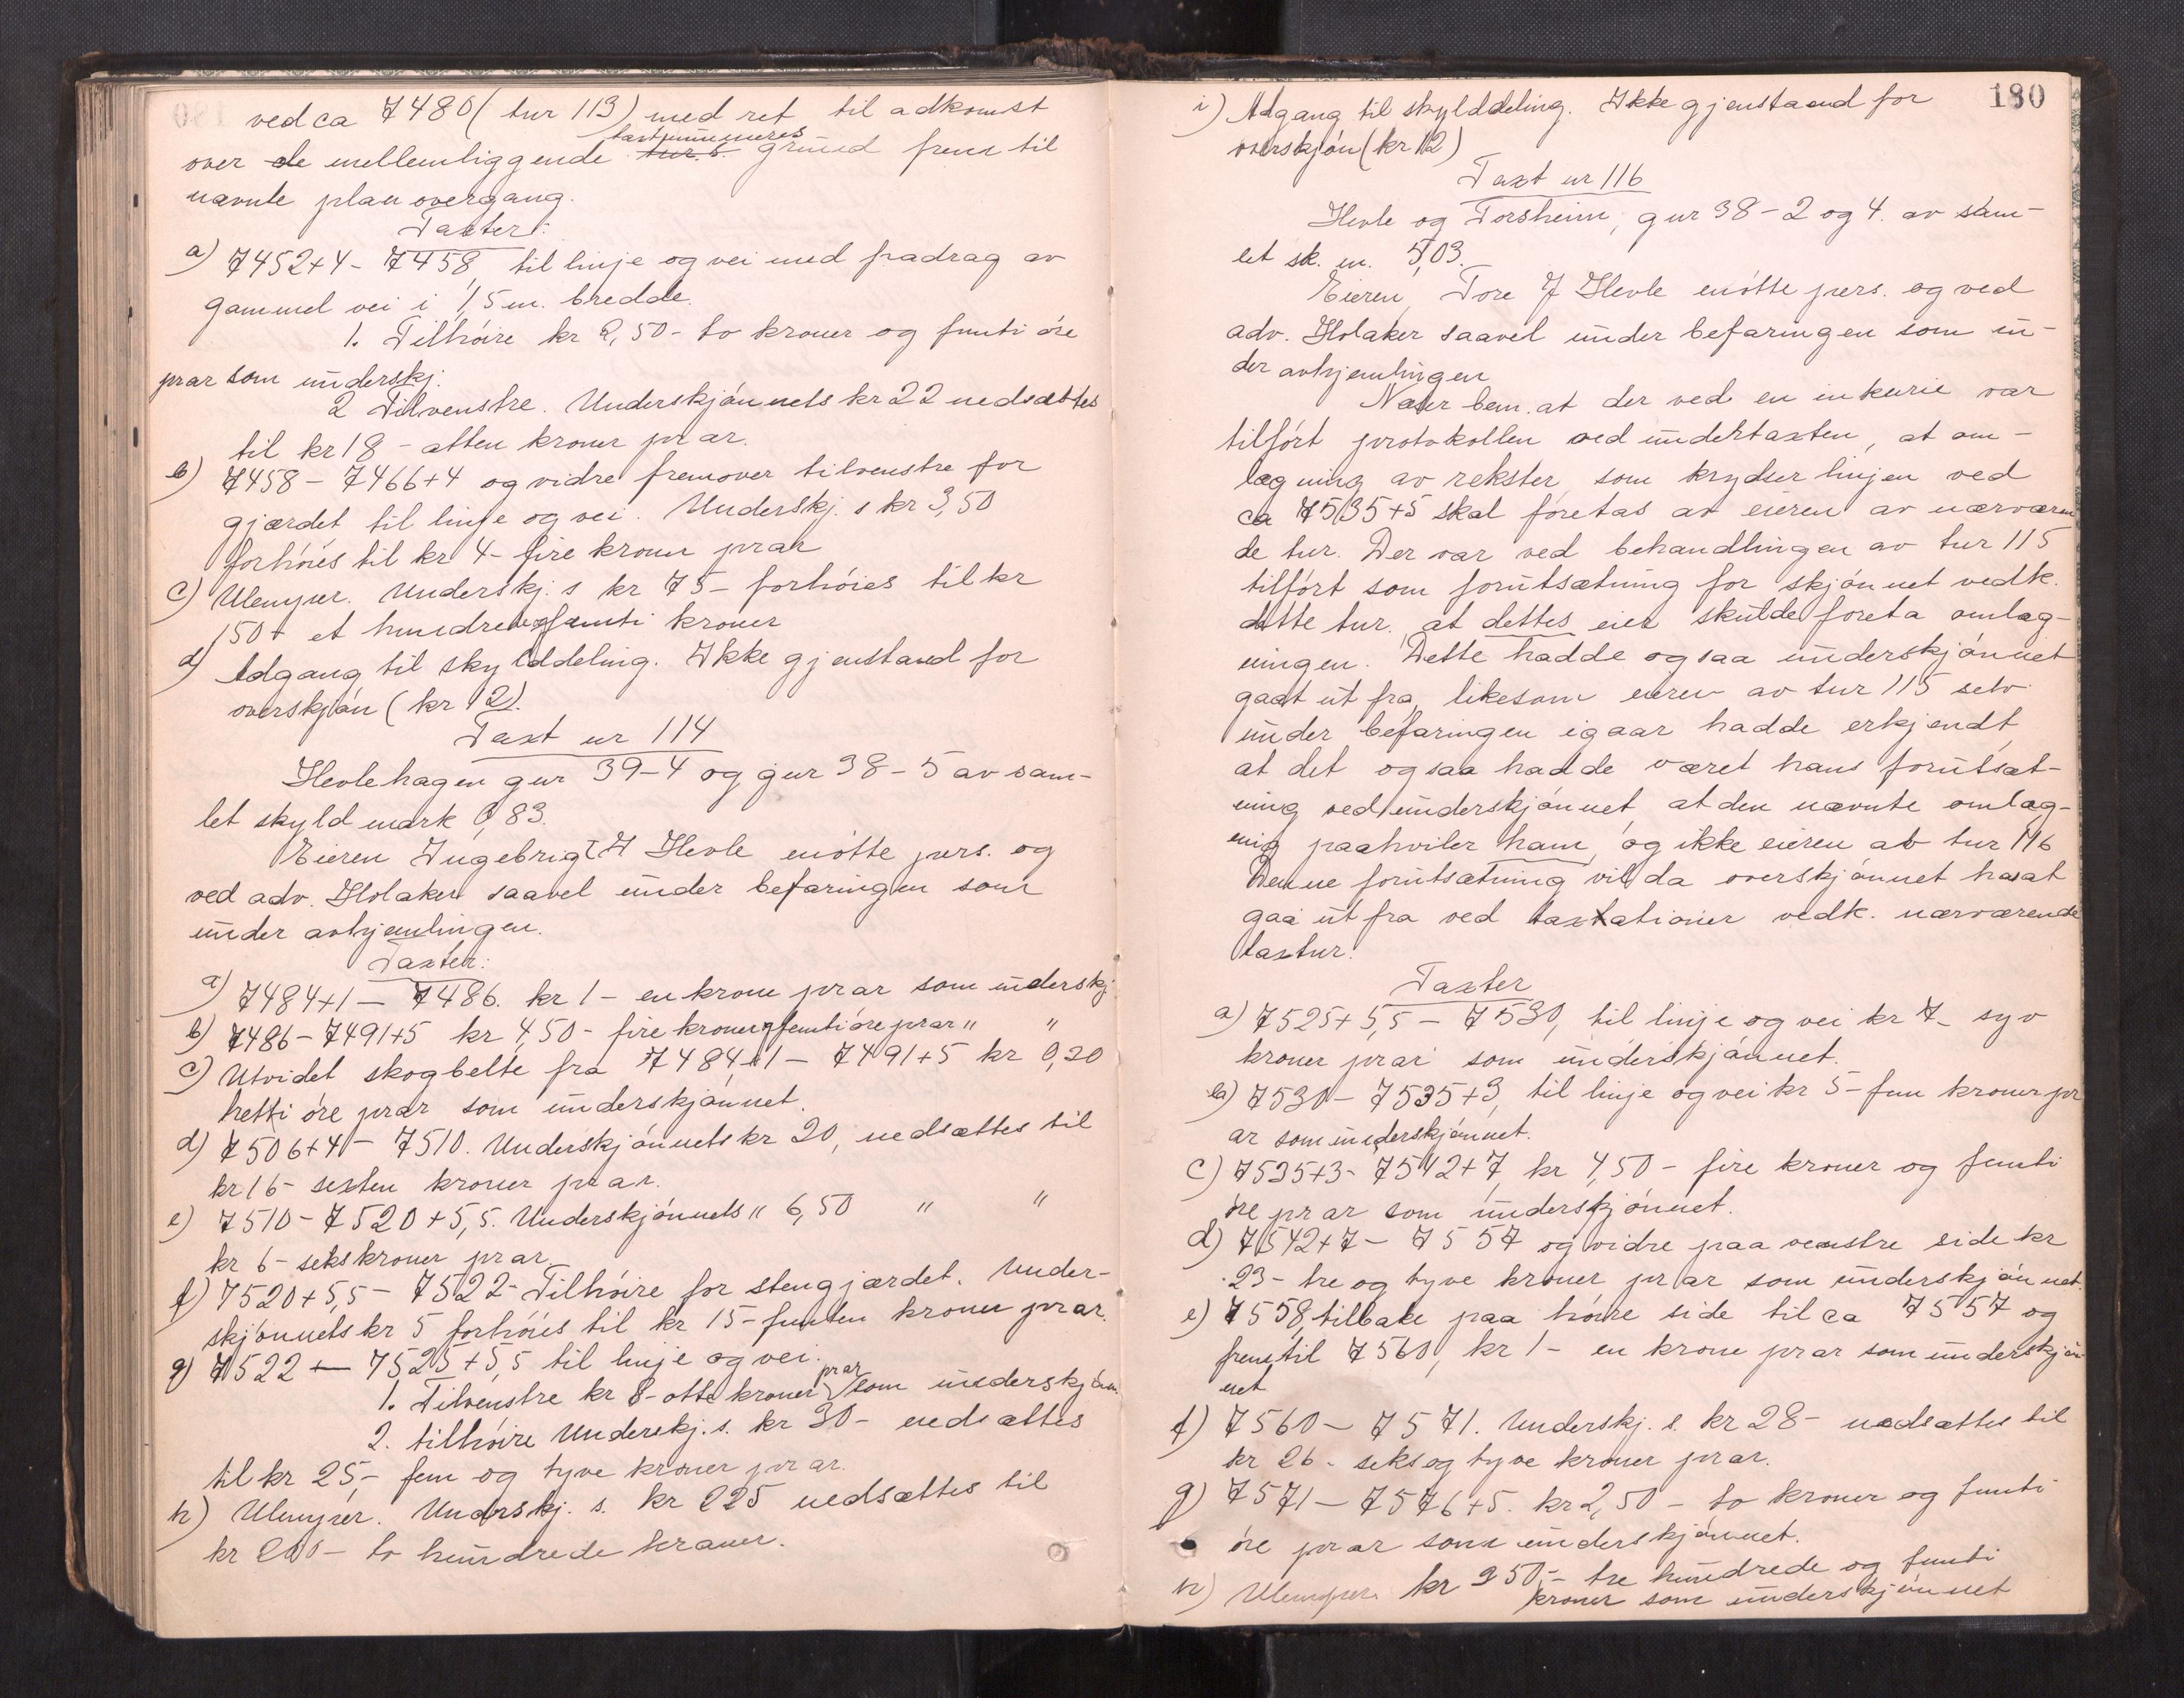 ved ca 7480 (tnr 113) med ret til adkomst
over de mellemliggende takstnummeres grund frem til
nævnte planovergang.
Taxter:
a) 7452+4 - 7458, til linje og vei med fradrag av
gammel vei i 1,5 m. bredde.
1. Tilhöire kr 2,50 - to kroner og femti öre
pr ar som underskj.
2 Tilvenstre. Underskjönnets kr 22 nedsættes
til kr 18 - atten kroner pr ar.
b) 7458 - 7466+4 og vidre fremover tilvenstre for
gjærdet til linje og vei. Underskj. s kr 3,50
forhöies til kr 4 - fire kroner pr ar
c) Ulemper. Underskj. s kr 75 - forhöies til kr
150 - et hundrede og femti kroner
d) Adgang til skylddeling. Ikke gjenstand for
overskjön (kr 12).
Taxt nr 114
Hevlehagen gnr 39-4 og gnr 38-5 av sam-
let skyld mark 0,83.
Eieren Ingebrigt H Hevle mötte pers. og
ved adv. Holaker saavel under befaringen som
under avhjemlingen.
Taxter:
a) 7484+1 - 7486. kr 1 - en krone pr ar som underskj
b) 7486 - 7491+5 kr 4,50 - fire kroner og femti öre pr ar " "
c) Utvidet skogbelte fra 7484+1 - 7491+5 kr 0,30
tretti öre pr ar som underskjönnet.
d) 7506+4 - 7510. Underskjönnets kr 20, nedsættes til
kr 16 - sexten kroner pr ar.
e) 7510 - 7520+5,5. Underskjönnets " 6,50 " "
kr 6 - seks kroner pr ar
f) 7520+5,5 - 7522 - Tilhöire for stengjærdet. Under-
skjönnets kr 5 forhöies til kr 15 - femten kroner pr ar.
g) 7522 - 7525+5,5 til linje og vei.
1. Tilvenstre kr 8 - otte kroner pr ar som underskjönn.
2. tilhöire Underskj. s. kr 30 - nedsættes
til kr 25,- fem og tyve kroner pr ar.
h) Ulemper. Underskj. s. kr 225 nedsættes til
kr 200 - to hundrede kroner.
180
i) Adgang til skylddeling. Ikke gjenstand for
overskjön (kr 12)
Taxt nr 116
Hevle og Torsheim, gnr 38-2 og 4. av sam-
let sk. m. 5,03.
Eieren, Tore J Hevle mötte pers. og ved
adv. Holaker saavel under befaringen som un-
der avhjemlingen
Næser bem. at der ved en inkurie var
tilfört protokollen ved undertaxten, at om-
lægning av rekster som krydser linjen ved
ca 7535+5 skal foretas av eieren av nærværen
de tnr. Der var ved behandlingen av tnr 115
tilfört som forutsætning for skjönnet vedk.
dette tnr. at dettes eier skulde foreta omlæg-
ningen. Dette hadde ogsaa underskjönnet
gaat ut fra, likesom eieren av tnr 115 selv
under befaringen igaar hadde erkjendt,
at det ogsaa hadde været hans forutsæt-
ning ved underskjönnet, at den nævnte omlæg-
ning paahviler ham, og ikke eieren av tnr 116
Denne forutsætning vil da overskjönnet ha at
gaa ut fra ved taxationer vedk. nærværende
taxtnr.
Taxter
a) 7525+5,5 - 7530, til linje og vei kr 7 - syv
kroner pr ar som underskjönnet.
b) 7530 - 7535+3, til linje og vei kr 5 - fem kroner pr
ar som underskjönnet.
c) 7535+3 - 7542+7, kr 4,50 - fire kroner og femti
öre pr ar som underskjönnet.
d) 7542+7 - 7557 og vidre paa venstre side kr
23 - tre og tyve kroner pr ar som underskjönnet.
e) 7558, tilbake paa höire side til ca 7557 og
frem til 7560, kr 1 - en krone pr ar som underskjön-
net
f) 7560 - 7571. Underskj. s. kr 28 - nedsættes til
kr 26 - seks og tyve kroner pr ar.
g) 7571 - 7576+5. kr 2,50 - to kroner og femti
öre pr ar som underskjönnet.
h) Ulemper. kr 350,- tre hundrede og femti
kroner som underskjönnet